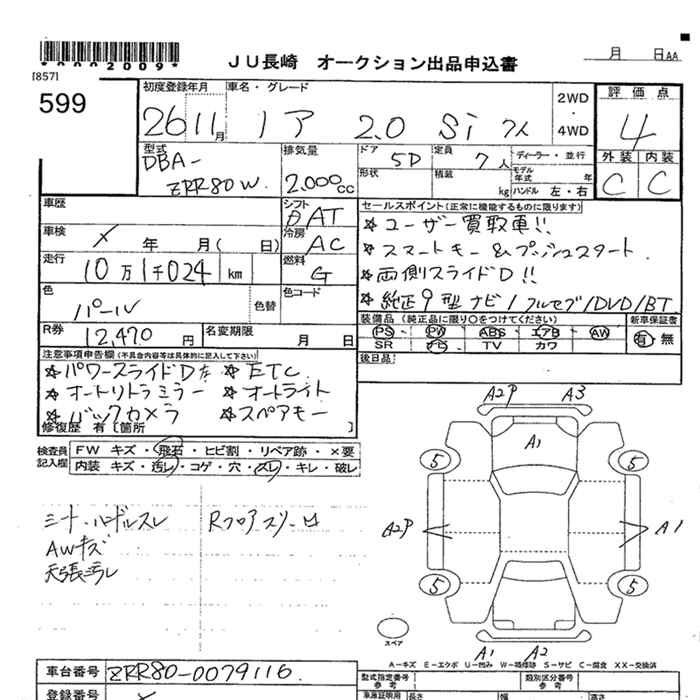 *0002009*
[857]
JU長崎 オークション出品申込書
月 日AA
599
初度登録年月 車名・グレード 評価点
26 11月 ノア 2.0 Si 2WD 4WD 4
型式 DBA- ZRR80W
排気量 2.000cc
ドア 5D 定員 7人 ディーラー・並行
形状 積載 kg モデル年式 年 ハンドル 左・右
外装 内装
C C
車歴
シフト AT
セールスポイント(正常に機能するものに限ります)
☆ユーザー買取車!!
車検 × 年 月( 日)
冷房 AC
☆スマートキー&プッシュスタート
走行 10万1千024 km
燃料 G
☆両側スライドD!!
色 パール 色替
色コード
☆純正9型ナビ/フルセグ/DVD/BT
R券 12,470円 名変期限 月 日
装備品(純正品に限り○をつけてください) 新車保証書
PS PW ABS エアB AW 有・無
SR ナビ TV カワ
注意事項申告欄(不具合内容等は具体的に記入して下さい)
後日品
☆パワースライドD左 ☆ETC
☆オートリトラミラー ☆オートライト
☆バックカメラ ☆スペアキー
修復歴 有〔箇所 〕
検査員記入欄
FW キズ・飛石・ヒビ割・リペア跡・×要
内装 キズ・汚レ・コゲ・穴・スレ・キレ・破レ
シート・ハンドルスレ
AWキズ
天張汚レ
A2P A3
A1
5 5
A2P A1
5 5
スペア
A1 A2
A-キズ E-エクボ U-凹み W-補修跡 S-サビ C-腐食 XX-交換済
車台番号 ZRR80-0079116
型式指定番号 参考
類別区分番号 参考
登録番号
車庫証明用 参考
長さ 幅 高さ